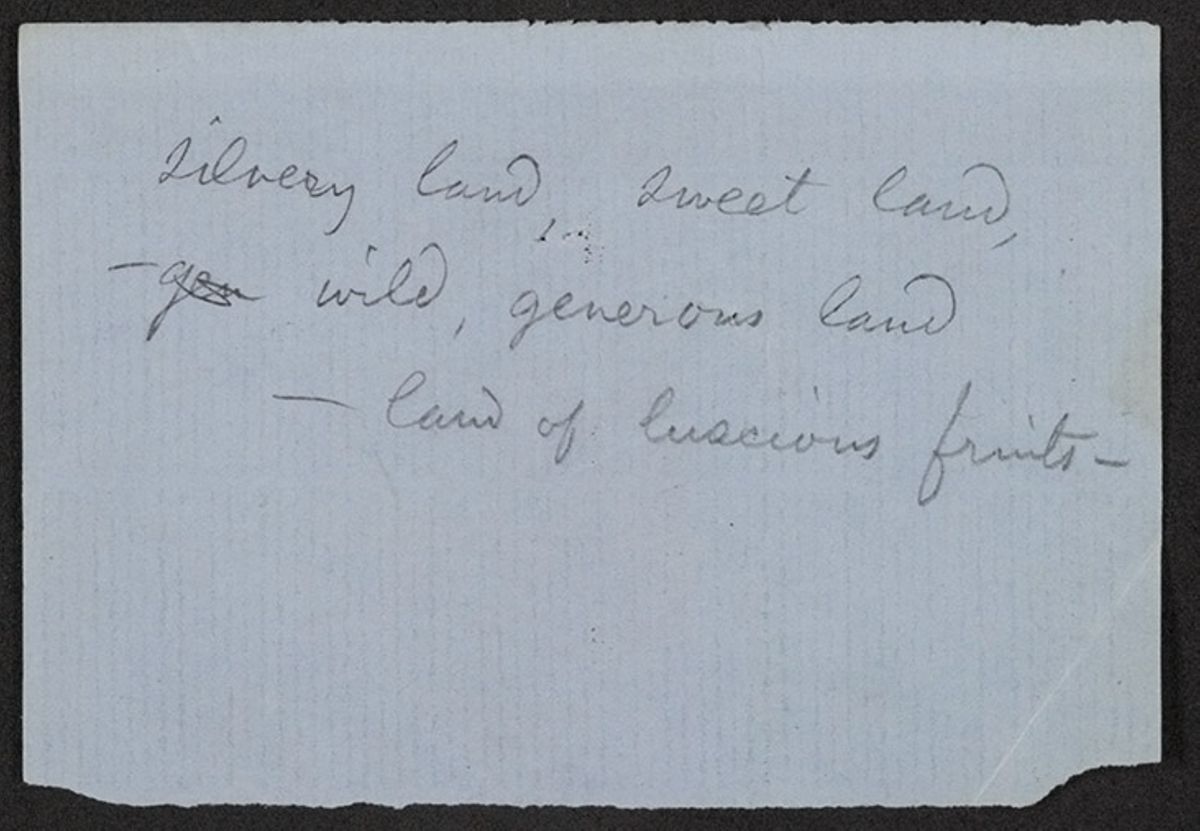 silvery land, sweet land,
– gen wild, generous land
— land of luscious fruits –